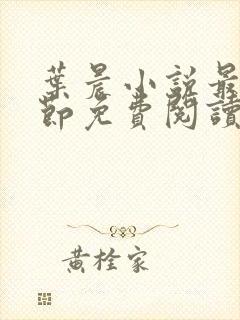 葉晨小說最
節免費閱讀
黃栓家